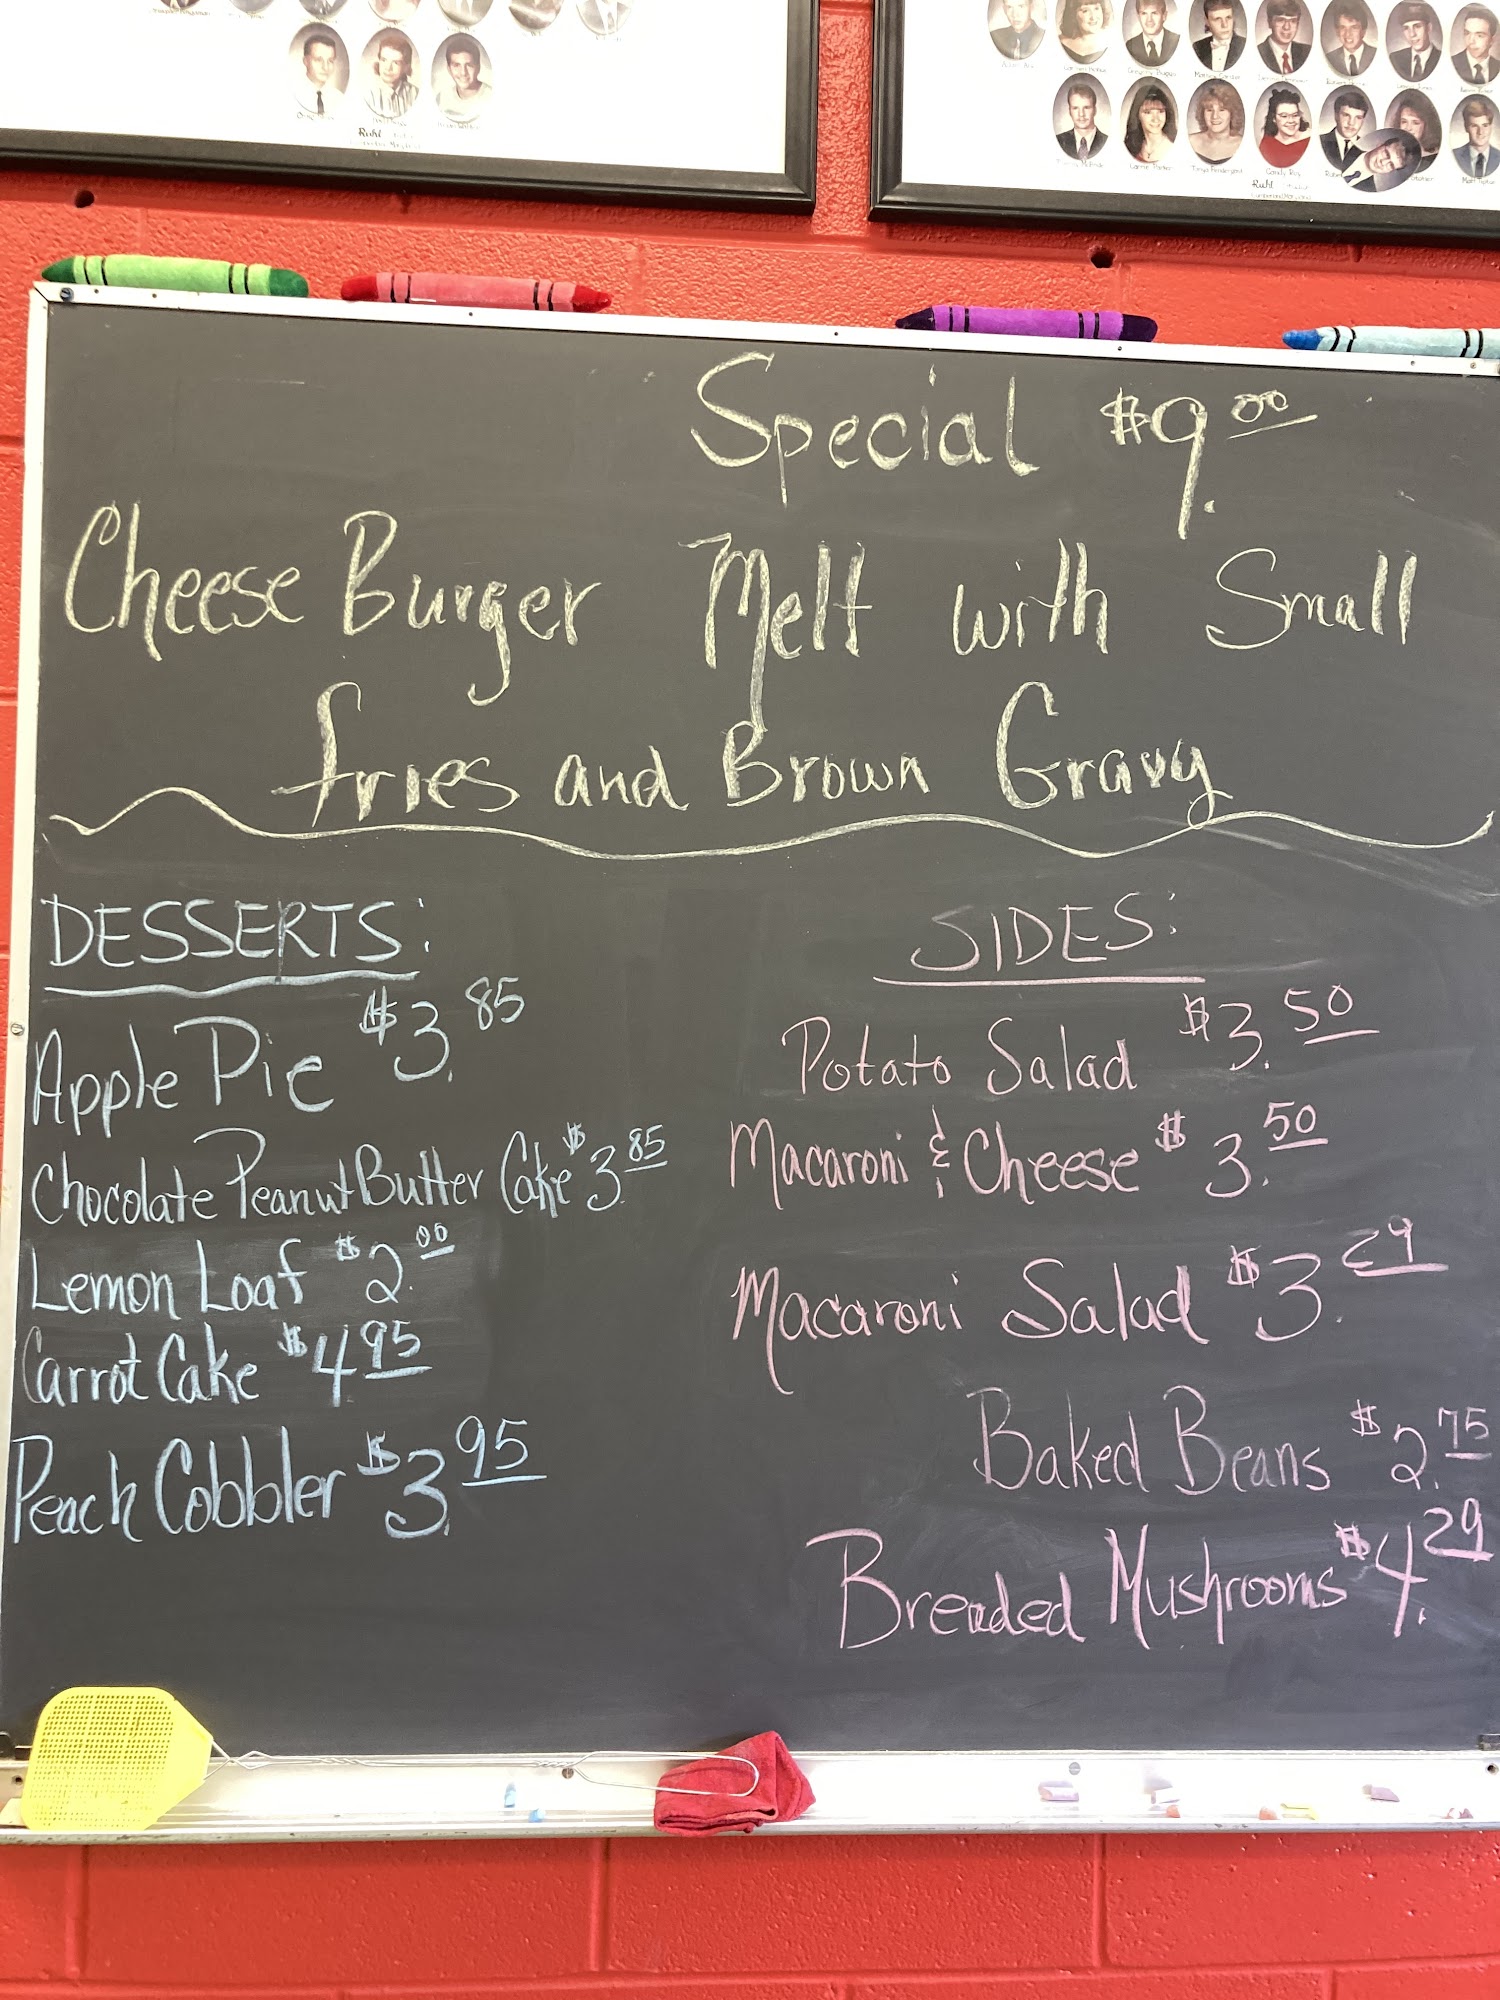 Ruhl
Carrie Parker
Candy Ray
Ruhl
Special $9.00
Cheese Burger Melt with Small
fries and Brown Gravy
DESSERTS:
Apple Pie $3.85
Chocolate Peanut Butter Cake $3.85
Lemon Loaf $2.00
Carrot Cake $4 95
Peach Cobbler $3.95
SIDES:
Potato Salad $3.50
Macaroni & Cheese $3.50
Macaroni Salad $3.29
Baked Beans $2.75
Breaded Mushrooms $4.29